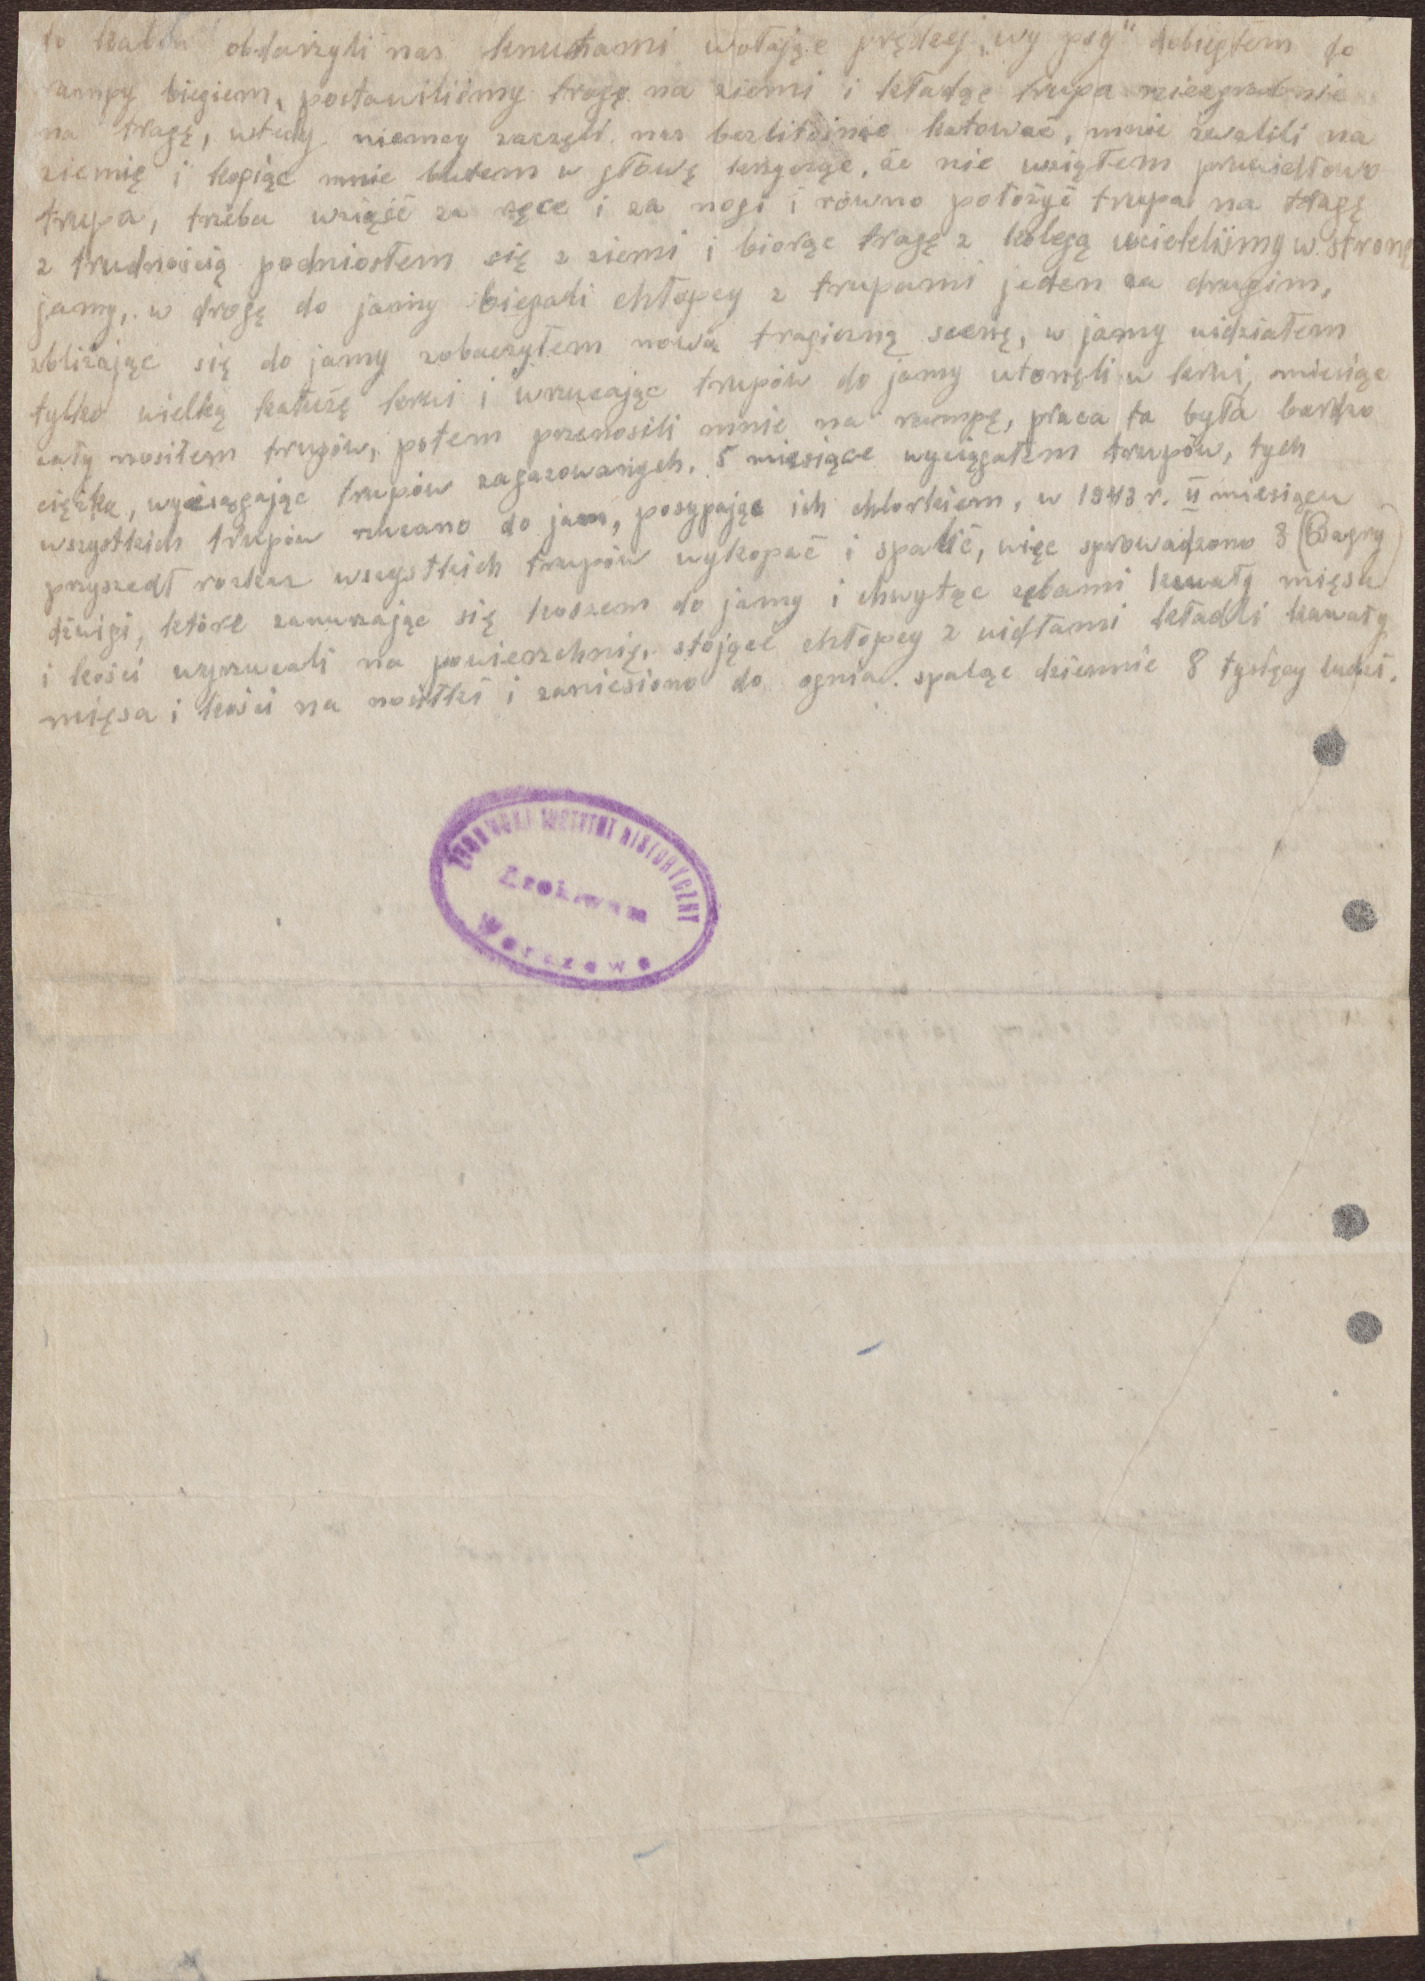 to obdarzyli nas knutami wołając prędzej „wy psy" dobiegłem do
rampy biegiem, postawiliśmy tragę na ziemi i kładąc trupa niezgrabnie
na tragę, wtedy niemcy zaczęli nas bezlitośnie katować, mnie zwalili na
ziemię i kopiąc mnie butem w głowę krzycząc, że nie wziąłem prawidłowo
trupa, trzeba wziąść za ręce i za nogi i równo położyć trupa na tragę
z trudnością podniosłem się z ziemi i biorąc tragę z kolegą ucieklismy w stronę
jamy, w drogę do jamy biegali chłopcy z trupami jeden za drugim,
zbliżając się do jamy zobaczyłem nową tragiczną scenę, w jamy widziałem
tylko wielką kałużę krwi i wrzucając trupów do jamy utonęli w krwi, miesiąc
cały nosiłem trupów, potem przenosili mnie na rampę, praca ta była bardzo
ciężka, wyciągając trupów zagazowanych. 5 miesiące wyciągałem trupów, tych
wszystkich trupów rzucano do jam, posypając ich chlorkiem, w 1943 r. II miesiącu
przyszedł rozkaz wszystkich trupów wykopać i spalić, więc sprowadzono 3 (Bagry)
dźwigi, które zanurzając się koszem do jamy i chwytąc zębami kawały mięsa
i kości wyrzucali na powierzchnię. stojące chłopcy z widłami kładli kawały
mięsa i kości na nosiłki i zaniesiono do ognia. spaląc dziennie 8 tysięcy ludzi.
ŻYDOWSKI INSTYTUT HISTORYCZNY
Archiwum
Warszawa